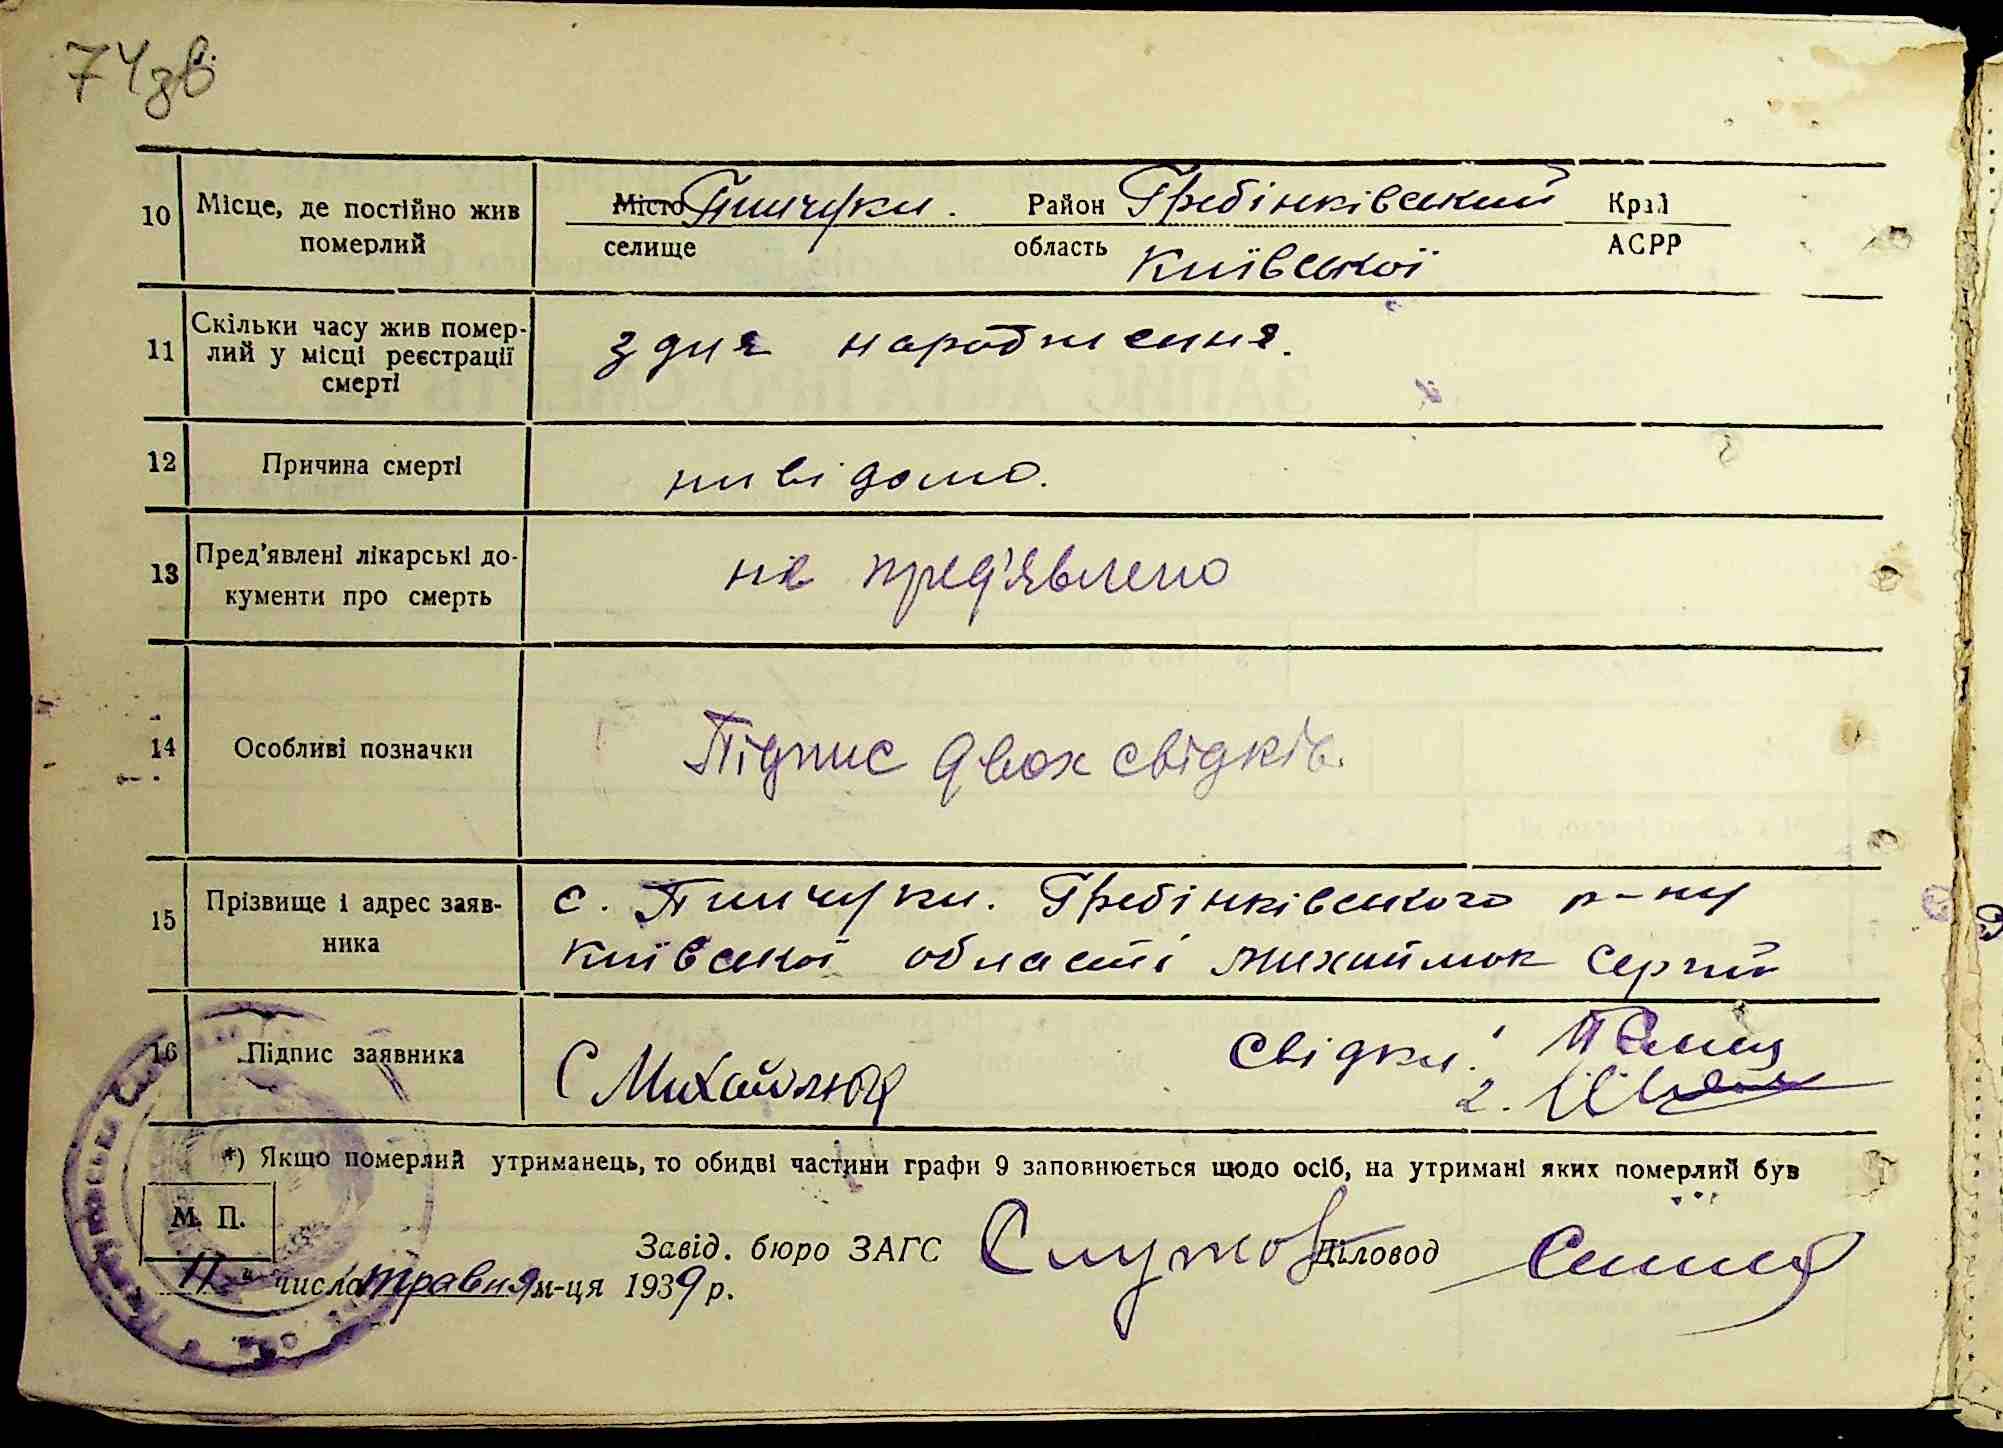 74зв
10 Місце, де постійно жив померлий
Місто Пинчуки. Район Гребінківський Край
селище область Київської АСРР
11 Скільки часу жив помер-
лий у місці реєстрації
смерті
з дня народження.
12 Причина смерті нивідомо.
13 Пред'явлені лікарські до-
кументи про смерть
не пред'явлено
14 Особливі позначки Підпис двох свідків.
15 Прізвище і адрес заяв-
ника
с. Пинчуки. Гребінківського р-ну
Київської області Михайлюк Сергій
16 Підпис заявника С Михайлюк Свідки: 1
2.
*) Якщо померлий утриманець, то обидві частини графи 9 заповнюється щодо осіб, на утримані яких померлий був
М. П.
Завід. бюро ЗАГС Діловод
11 числа травня м-ця 1939 р.